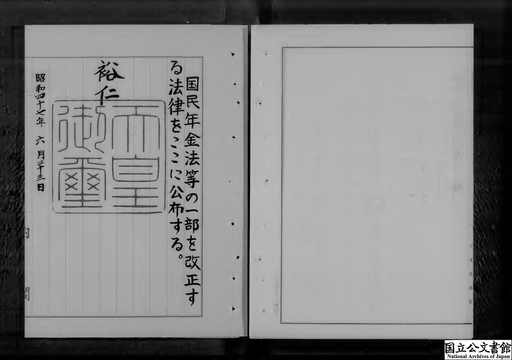 国民年金法等の一部を改正す
る法律をここに公布する。
裕仁
天皇
御璽
昭和四十七年 六月二十三日
内閣
国立公文書館
National Archives of Japan